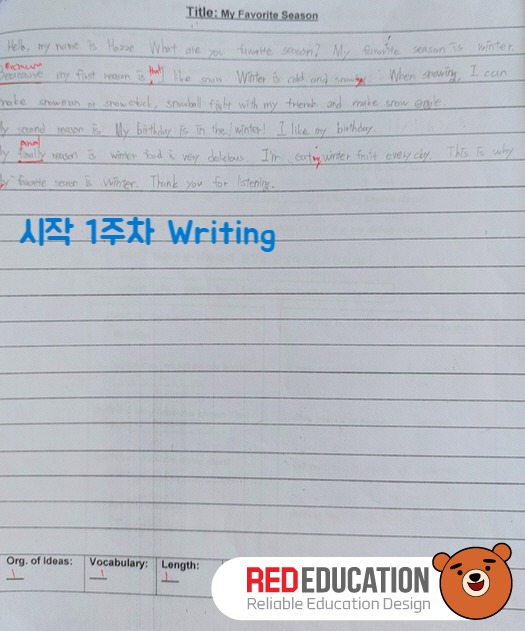 Title: My Favorite Season
Hello, my name is What are you favorite season? My favorite season is winter.
because
my first reason is that I like snow. Winter is cold and snowy. When snowing, I can
make snowman or snowduck, snowball fight with my friends and make snow
My second reason is My birthday is in the winter! I like my birthday.
And
reason is winter food is very delicious. I'm eating winter fruit every day. This is why
My favorite season is winter. Thank you for listening.
시작 1주차 Writing
Org. of Ideas: Vocabulary: Length:
1 1 1
RED EDUCATION
Reliable Education Design